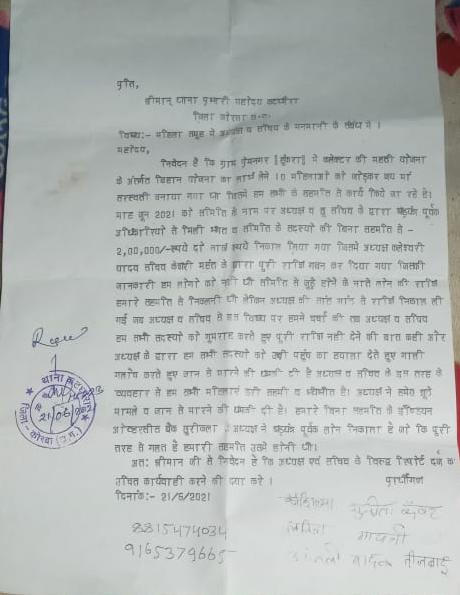 प्रति,
श्रीमान् थाना प्रभारी महोदय कटघोरा
जिला कोरबा छ.ग.
विषय:- महिला समूह में अध्यक्ष व सचिव के मनमानी के संबंध में ।
महोदय,
निवेदन है कि ग्राम प्रेमनगर में कलेक्टर की महती योजना
के अंतर्गत बिहान योजना का लाभ लेने 10 महिलाओं को जोड़कर जय मां
सरस्वती बनाया गया था जिसमें हम सभी के सहमति से कार्य किये जा रहे है।
माह जून 2021 को समिति के नाम पर अध्यक्ष व सचिव के द्वारा षडयंत्र पूर्वक
अधिकारियों से मिली भगत व समिति के सदस्यों की बिना सहमति से -
2,00,000/-रूपये दो लाख रूपये निकाल लिया गया जिसमें अध्यक्ष
यादव सचिव महंत के द्वारा पूरी राशि गबन कर दिया गया जिसकी
जानकारी हम लोगों को नहीं थी समिति से जुड़े होने के नाते लोन की राशि
हमारे सहमति से निकलनी थी लेकिन अध्यक्ष की सांठ गांठ से राशि निकाल ली
गई जब अध्यक्ष व सचिव से इस विषय पर हमने चर्चा की तब अध्यक्ष व सचिव
हम सभी सदस्यों को गुमराह करते हुए पूरी राशि नहीं देने की बात कही और
अध्यक्ष के द्वारा हम सभी सदस्यों को उंची पहुंच का हवाला देते हुए गाली
गलौच करते हुए जान से मारने की धमकी दी है अध्यक्ष व सचिव के इस तरह के
व्यवहार से हम सभी महिलाएं डरी सहमी व भयभीत है। अध्यक्ष ने हमें झूठे
मामले व जान से मारने की धमकी दी है। हमारे बिना सहमति के इण्डियन
ओव्हरसीज बैंक अध्यक्ष ने षडयंत्र पूर्वक लोन निकाला है जो कि पूरी
तरह से गलत है हमारी सहमति उसमें होनी थी।
अत: श्रीमान जी से निवेदन है कि अध्यक्ष एवं सचिव के विरूद्ध रिपोर्ट दर्ज कर
उचित कार्यवाही करने की दया करें ।
प्रार्थीगण
दिनांक:- 21/6/2021
8815474034
9165379665
थाना कटघोरा
21/06
जिला - कोरबा (छ.ग.)